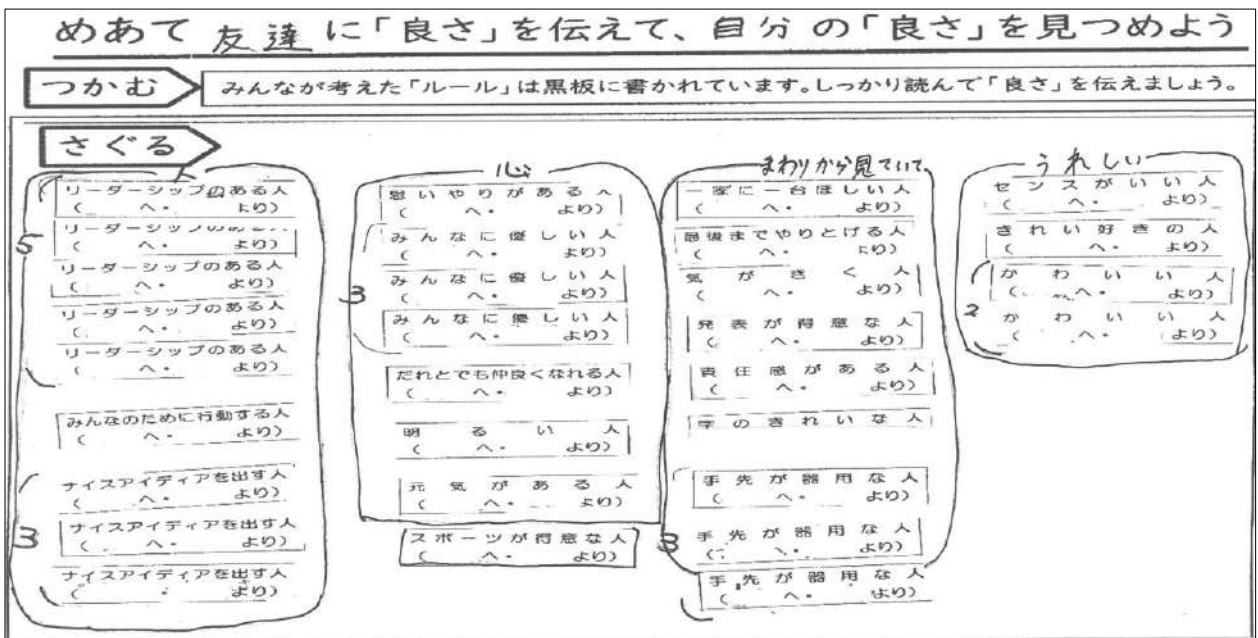 めあて 友達 に「良さ」を伝えて、自分の「良さ」を見つめよう
つかむ
みんなが考えた「ルール」は黒板に書かれています。しっかり読んで「良さ」を伝えましょう。
さぐる
リーダーシップのある人
( へ・ より)
リーダーシップのある人
( へ・ より)
リーダーシップのある人
( へ・ より)
リーダーシップのある人
( へ・ より)
リーダーシップのある人
( へ・ より)
5
みんなのために行動する人
( へ・ より)
ナイスアイディアを出す人
( へ・ より)
ナイスアイディアを出す人
( へ・ より)
ナイスアイディアを出す人
( ・ より)
3
心
思いやりがある人
( へ・ より)
みんなに優しい人
( へ・ より)
みんなに優しい人
( へ・ より)
みんなに優しい人
( へ・ より)
3
だれとでも仲良くなれる人
( へ・ より)
明るい人
( へ・ より)
元気がある人
( へ・ より)
スポーツが得意な人
( へ・ より)
まわりから見ていて
一家に一台ほしい人
( へ・ より)
最後までやりとげる人
( へ・ より)
気がきく人
( へ・ より)
発表が得意な人
( へ・ より)
責任感がある人
( へ・ より)
字のきれいな人
手先が器用な人
( へ・ より)
手先が器用な人
( へ・ より)
手先が器用な人
( へ・ より)
3
うれしい
センスがいい人
( へ・ より)
きれい好きの人
( へ・ より)
かわいい人
( へ・ より)
かわいい人
( へ・ より)
2